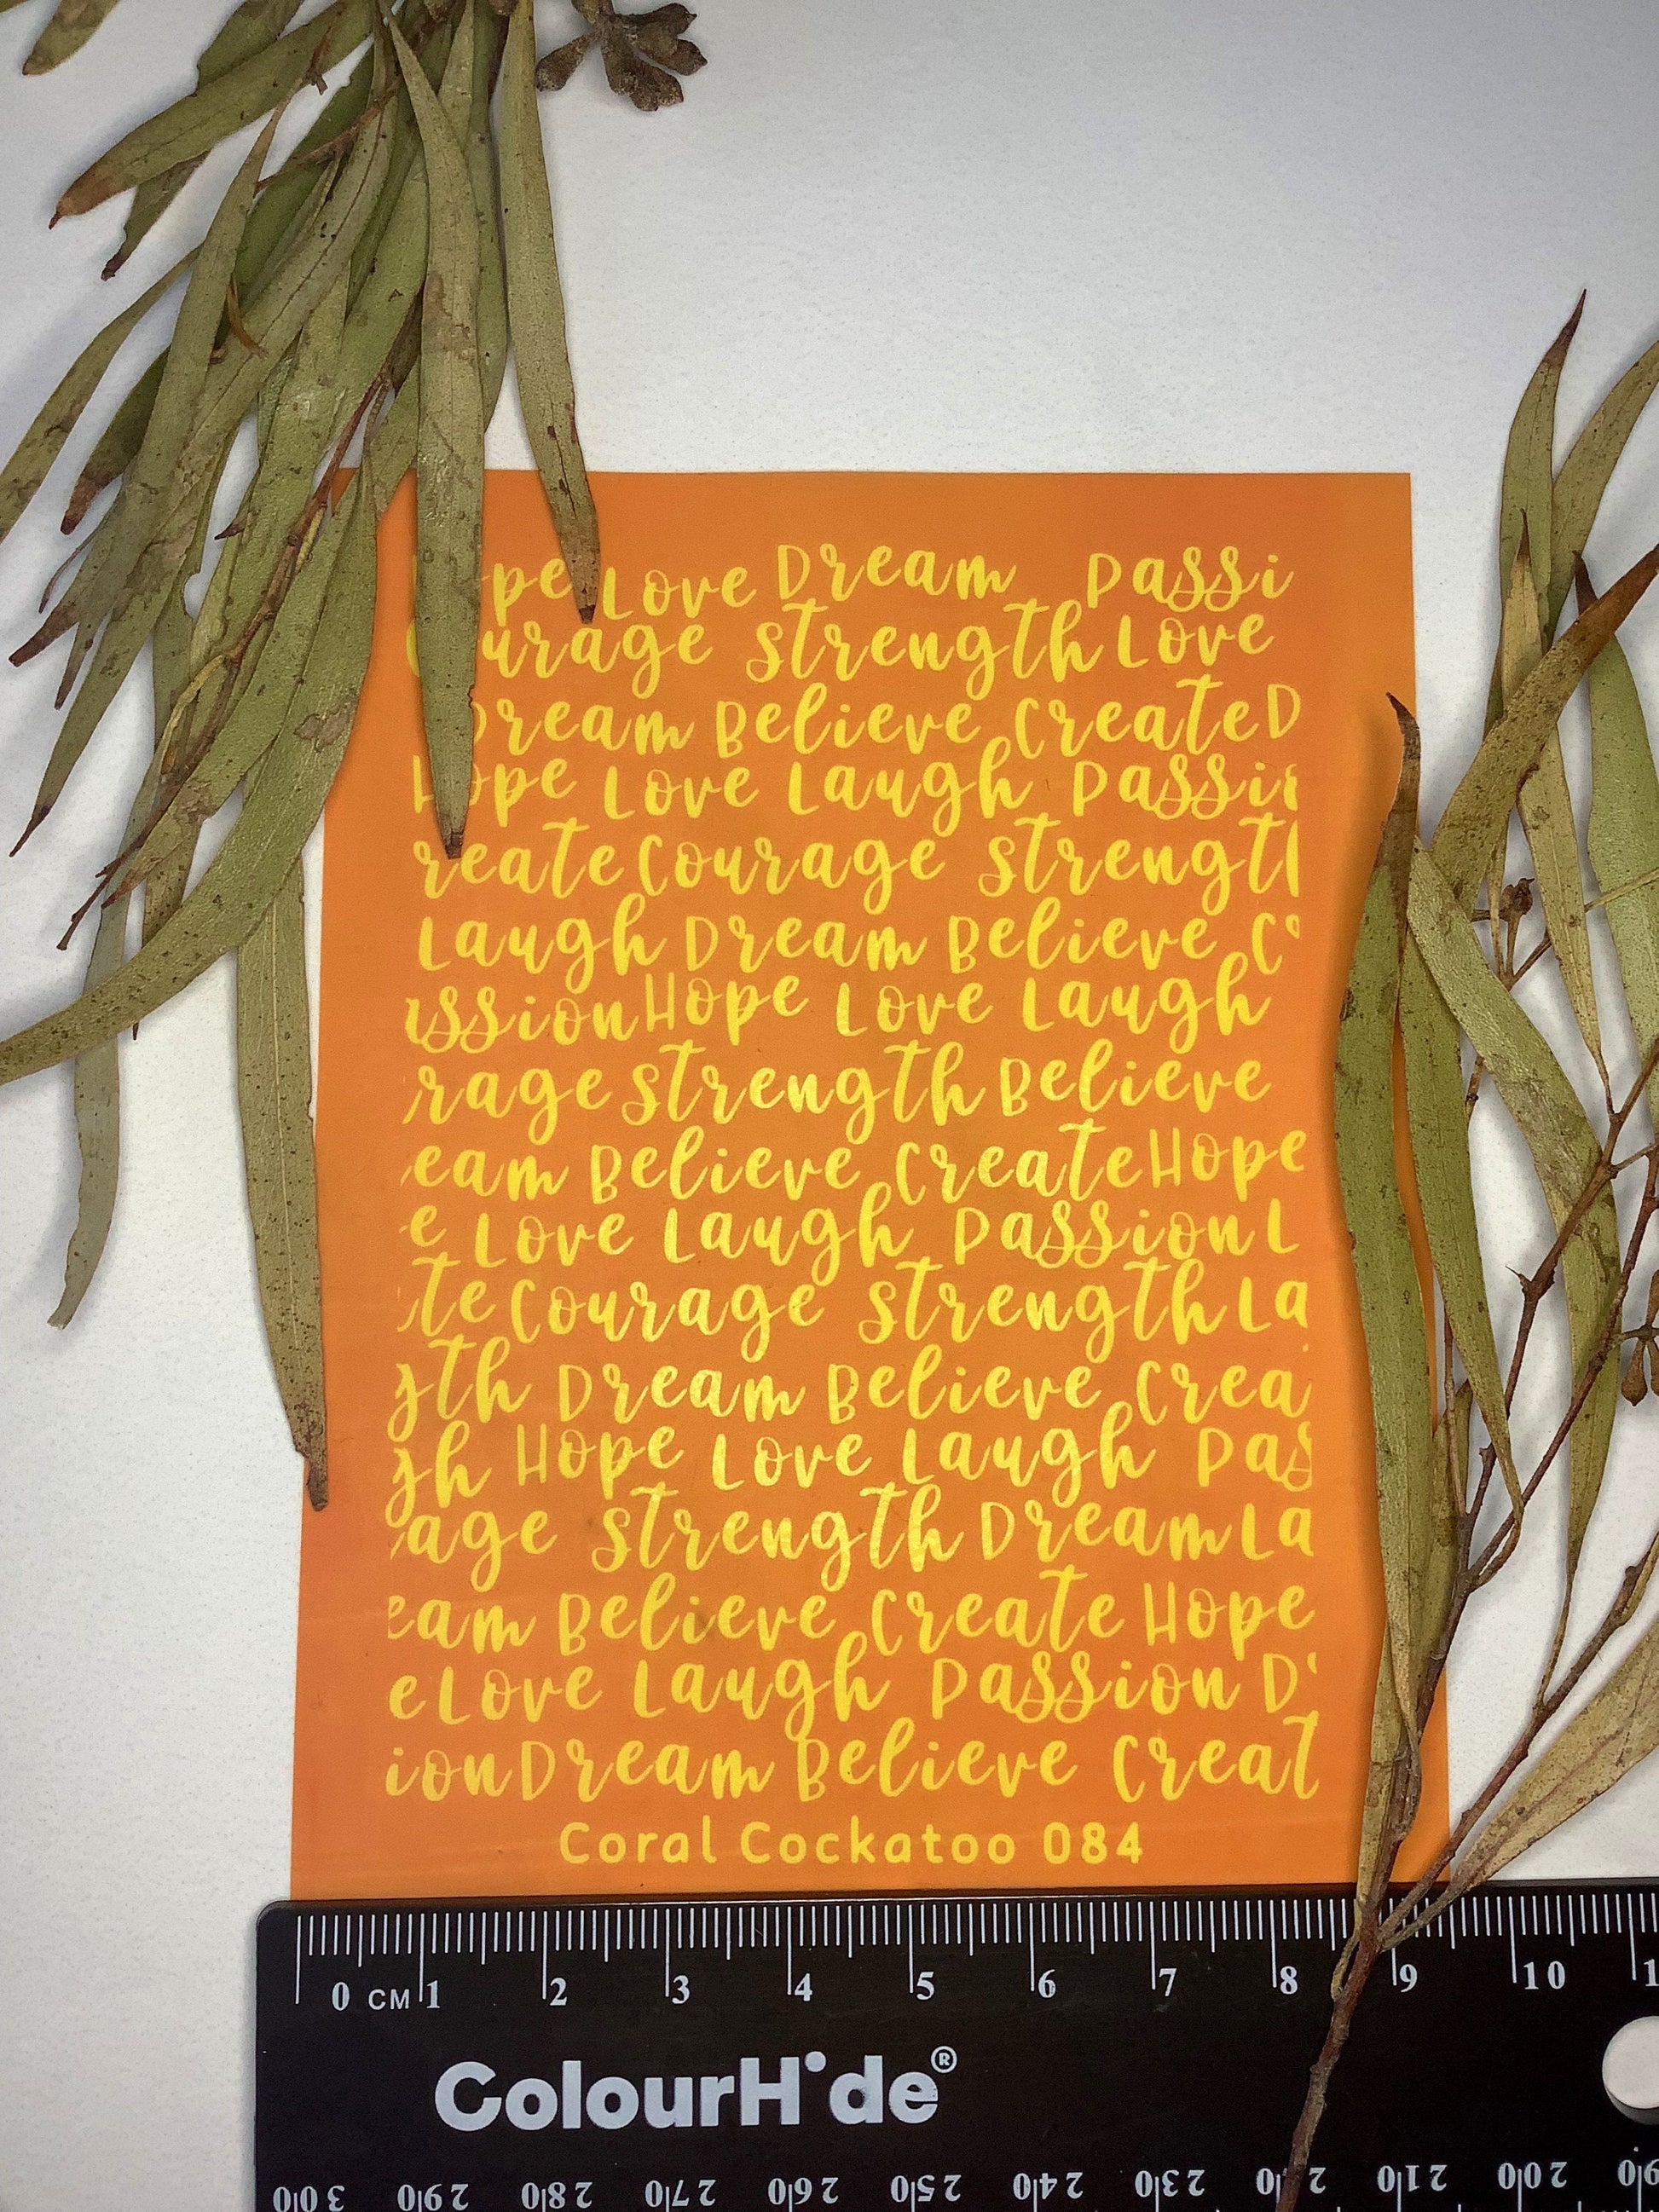 pe Love Dream Passi
urage Strength Love
Dream Believe Create D
Hope Love Laugh Passi
reate Courage Strengt
Laugh Dream Believe C
ssion Hope Love Laugh
rage Strength Believe
eam Believe Create Hope
e Love Laugh Passion L
te Courage Strength La
gth Dream Believe Crea
gh Hope Love Laugh Pas
age Strength Dream La
eam Believe Create Hope
e Love Laugh Passion D
ion Dream Believe Creat
Coral Cockatoo 084
0 CM 1 2 3 4 5 6 7 8 9 10 1
ColourHide®
300 290 280 270 260 250 240 230 210 200